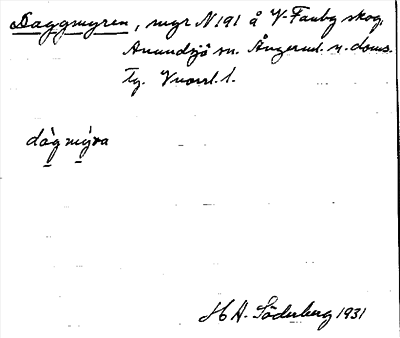 Daggmyren, myr N 191 å V-Fanby skog,
Anundsjö sn. Ångerml. n. doms.
tg. Vnorrl. l.
dàg mýra
H A. Söderberg 1931